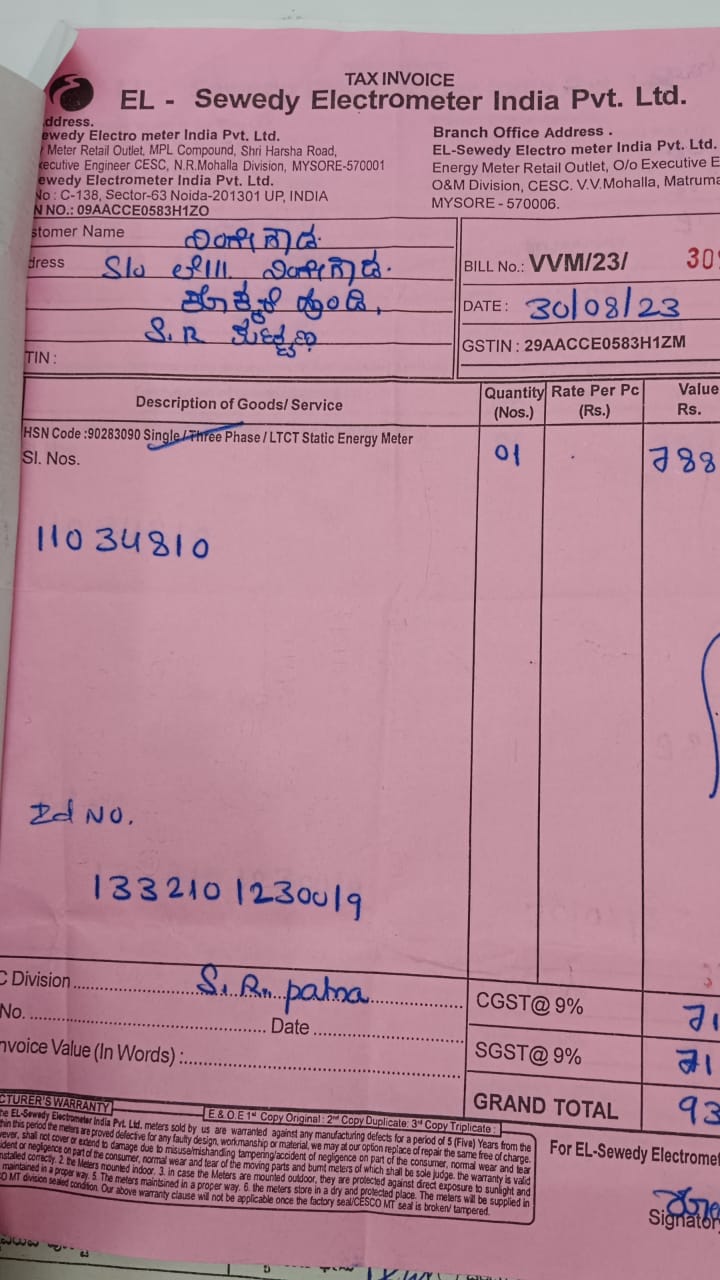 TAX INVOICE
EL - Sewedy Electrometer India Pvt. Ltd.
ddress.
ewedy Electro meter India Pvt. Ltd.
Meter Retail Outlet, MPL Compound, Shri Harsha Road,
xecutive Engineer CESC, N.R.Mohalla Division, MYSORE-570001
ewedy Electrometer India Pvt. Ltd.
No : C-138, Sector-63 Noida-201301 UP, INDIA
N NO.: 09AACCE0583H1ZO
Branch Office Address .
EL-Sewedy Electro meter India Pvt. Ltd.
Energy Meter Retail Outlet, O/o Executive E
O&M Division, CESC. V.V.Mohalla, Matruma
MYSORE - 570006.
stomer Name
dress S/o
S.R
TIN :
BILL No.: VVM/23/ 30
DATE : 30/08/23
GSTIN : 29AACCE0583H1ZM
Description of Goods/ Service Quantity (Nos.) Rate Per Pc (Rs.) Value Rs.
HSN Code :90283090 Single / Three Phase / LTCT Static Energy Meter
Sl. Nos. 01 788
11034810
Id No.
1332101230019
C Division S. Rn patna
No. Date
nvoice Value (In Words) :
CGST@ 9% 71
SGST@ 9% 71
GRAND TOTAL 93
E & O.E 1st Copy Original : 2nd Copy Duplicate: 3rd Copy Triplicate :
CTURER'S WARRANTY
he EL-Sewedy Electrometer India Pvt. Ltd. meters sold by us are warranted against any manufacturing defects for a period of 5 (Five) Years from the
thin this period the meters are proved defective for any faulty design, workmanship or material, we may at our option replace of repair the same free of charge.
ever, shall not cover or extend to damage due to misuse/mishandling tampering/accident of negligence on part of the consumer, normal wear and tear
ident or negligence on part of the consumer, normal wear and tear of the moving parts and burnt meters of which shall be sole judge. the warranty is valid
nstalled correctly. 2. the Meters mounted indoor. 3. in case the Meters are mounted outdoor, they are protected against direct exposure to sunlight and
maintained in a proper way. 5. The meters maintsined in a proper way. 6. the meters store in a dry and protected place. The meters will be supplied in
O MT division sealed condition. Our above warranty clause will not be applicable once the factory seal/CESCO MT seal is broken/ tampered.
For EL-Sewedy Electrome
Signator